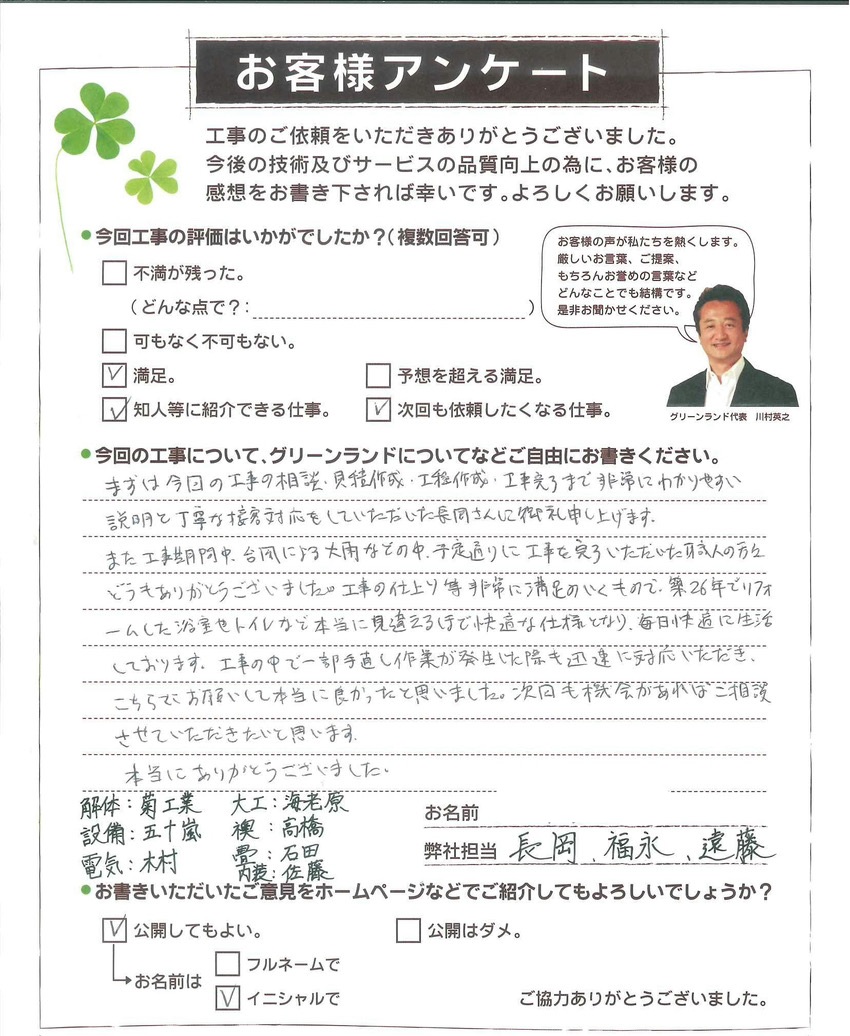 お客様アンケート
工事のご依頼をいただきありがとうございました。
今後の技術及びサービスの品質向上の為に、お客様の
感想をお書き下されば幸いです。よろしくお願いします。
●今回工事の評価はいかがでしたか？（複数回答可）
不満が残った。
（どんな点で？： ）
可もなく不可もない。
満足。
予想を超える満足。
知人等に紹介できる仕事。
次回も依頼したくなる仕事。
お客様の声が私たちを熱くします。
厳しいお言葉、ご提案、
もちろんお誉めの言葉など
どんなことでも結構です。
是非お聞かせください。
グリーンランド代表 川村英之
●今回の工事について、グリーンランドについてなどご自由にお書きください。
まずは今回の工事の相談・見積作成・工程作成・工事完了まで非常にわかりやすい
説明と丁寧な接客対応をしていただいた長岡さんに御礼申し上げます。
また工事期間中、台風による大雨などの中、予定通りに工事を完了いただいた職人の方々
どうもありがとうございました。工事の仕上り等非常に満足のいくもので、築26年でリフォ
ームした浴室やトイレなど本当に見違えるほど快適な仕様となり、毎日快適に生活
しております。工事の中で一部手直し作業が発生した際も迅速に対応いただき、
こちらにお願いして本当に良かったと思いました。次回も機会があればご相談
させていただきたいと思います。
本当にありがとうございました。
解体：菊工業 大工：海老原
設備：五十嵐 襖：高橋
電気：木村 畳：石田
内装：佐藤
お名前
弊社担当 長岡、福永、遠藤
●お書きいただいたご意見をホームページなどでご紹介してもよろしいでしょうか？
公開してもよい。
公開はダメ。
お名前は
フルネームで
イニシャルで
ご協力ありがとうございました。